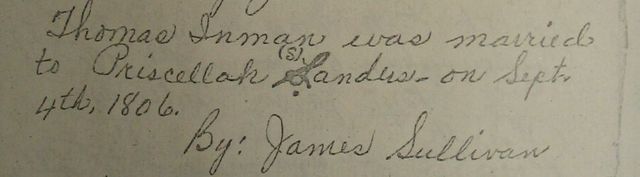 Thomas Inman was married
to Priscellah (S) Landus- on Sept.
4th, 1806.
By: James Sullivan